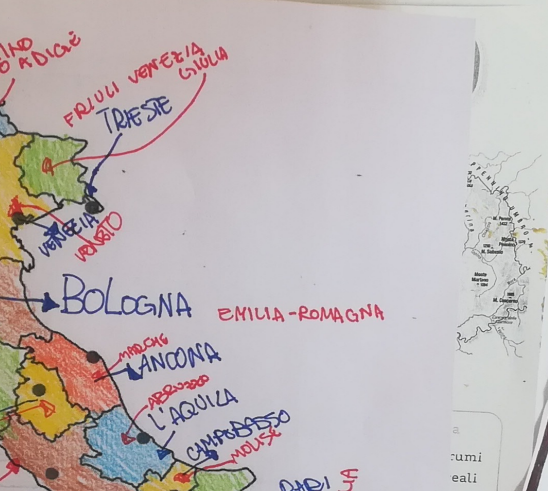 INO
ADIGE
FRIULI VENEZIA
GIULIA
TRIESTE
VENEZIA
VENETO
BOLOGNA
EMILIA-ROMAGNA
MARCHE
ANCONA
ABRUZZO
L'AQUILA
CAMPOBASSO
MOLISE
BARI
IA
a
rumi
eali